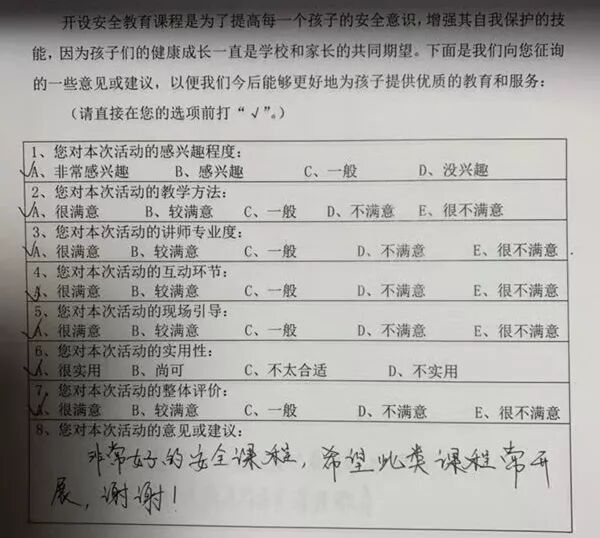 开设安全教育课程是为了提高每一个孩子的安全意识，增强其自我保护的技
能，因为孩子们的健康成长一直是学校和家长的共同期望。下面是我们向您征询
的一些意见或建议，以便我们今后能够更好地为孩子提供优质的教育和服务：
（请直接在您的选项前打“√”。）
1、您对本次活动的感兴趣程度：
✓A、非常感兴趣 B、感兴趣 C、一般 D、没兴趣
2、您对本次活动的教学方法：
✓A、很满意 B、较满意 C、一般 D、不满意 E、很不满意
3、您对本次活动的讲师专业度：
✓A、很满意 B、较满意 C、一般 D、不满意 E、很不满意
4、您对本次活动的互动环节：
✓A、很满意 B、较满意 C、一般 D、不满意 E、很不满意
5、您对本次活动的现场引导：
✓A、很满意 B、较满意 C、一般 D、不满意 E、很不满意
6、您对本次活动的实用性：
✓A、很实用 B、尚可 C、不太合适 D、不实用
7、您对本次活动的整体评价：
✓A、很满意 B、较满意 C、一般 D、不满意 E、很不满意
8、您对本次活动的意见或建议：
非常好的安全课程，希望此类课程常开
展，谢谢！